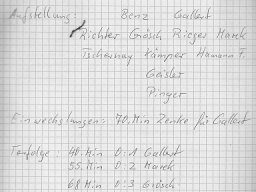 Aufstellung: Benz Gallert
Richter Grösch Rieger Marek
Tschernay Kämper Hamann F.
Geisler
Pinger
Einwechslungen: 70. Min Zenke für Gallert
Torfolge: 40. Min 0:1 Gallert
55. Min 0:2 Marek
68 Min 0:3 Grösch